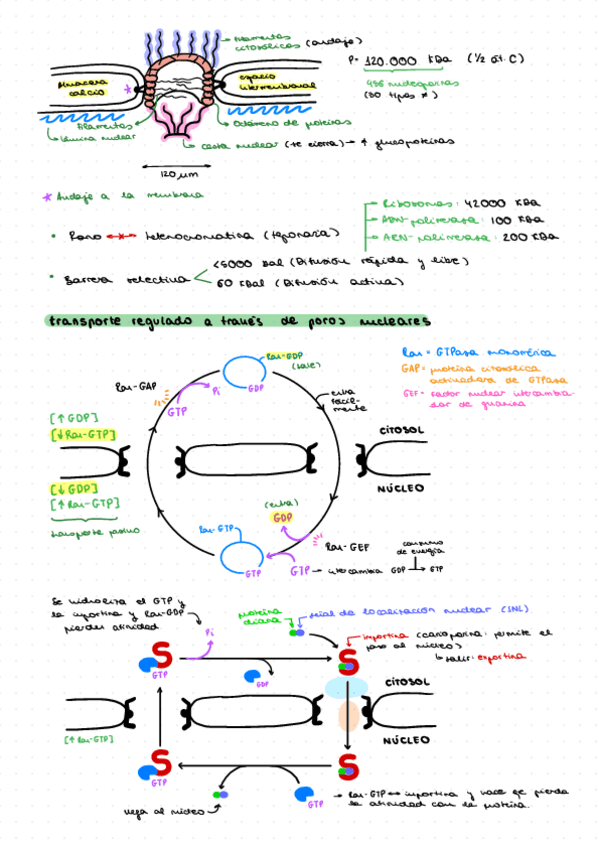 Filamentos
citosólicos (anclaje)
P= 120.000 KDa (1/2 at. C)
456 nucleoporinas
(30 tipos ≠)
Almacena
calcio
espacio
intermembranal
Filamentos
lámina nuclear
Octámero de proteínas
cesta nuclear (se cierra) → ≠ glucoproteínas
120 µm
* Anclaje a la membrana
Ribosomas: 42000 KDa
ADN-polimerasa: 100 KDa
ARN-polimerasa: 200 KDa
• Poro heterocromatina (taponaría)
• Barrera selectiva
<5000 Dal (Difusión rápida y libre)
60 KDal (Difusión activa)
transporte regulado a través de poros nucleares
Ran = GTPasa monomérica
GAP = proteína citosólica
activadora de GTPasa
GEF = Factor nuclear intercambia-
dor de guanina
Ran-GDP
(sale)
GDP
Ran-GAP
Pi
GTP
entra
fácil-
mente
[↑ GDP]
[↓ Ran-GTP]
CITOSOL
[↓ GDP]
[↑ Ran-GTP]
NÚCLEO
transporte pasivo
(entra)
GDP
Ran-GTP
GTP
Ran-GEF
GTP → intercambia GDP → GTP
consumo
de energía
Se hidroliza el GTP y
la importina y Ran-GDP
pierden afinidad
Pi
proteína
diana
señal de localización nuclear (SNL)
importina (carioporina: permite el
paso al núcleo)
↳ salir: exportina
GTP
GDP
CITOSOL
[↑ Ran-GTP]
NÚCLEO
GTP
llega al núcleo
GTP
→ Ran-GTP ↔ importina y hace que pierda
la afinidad con la proteína.